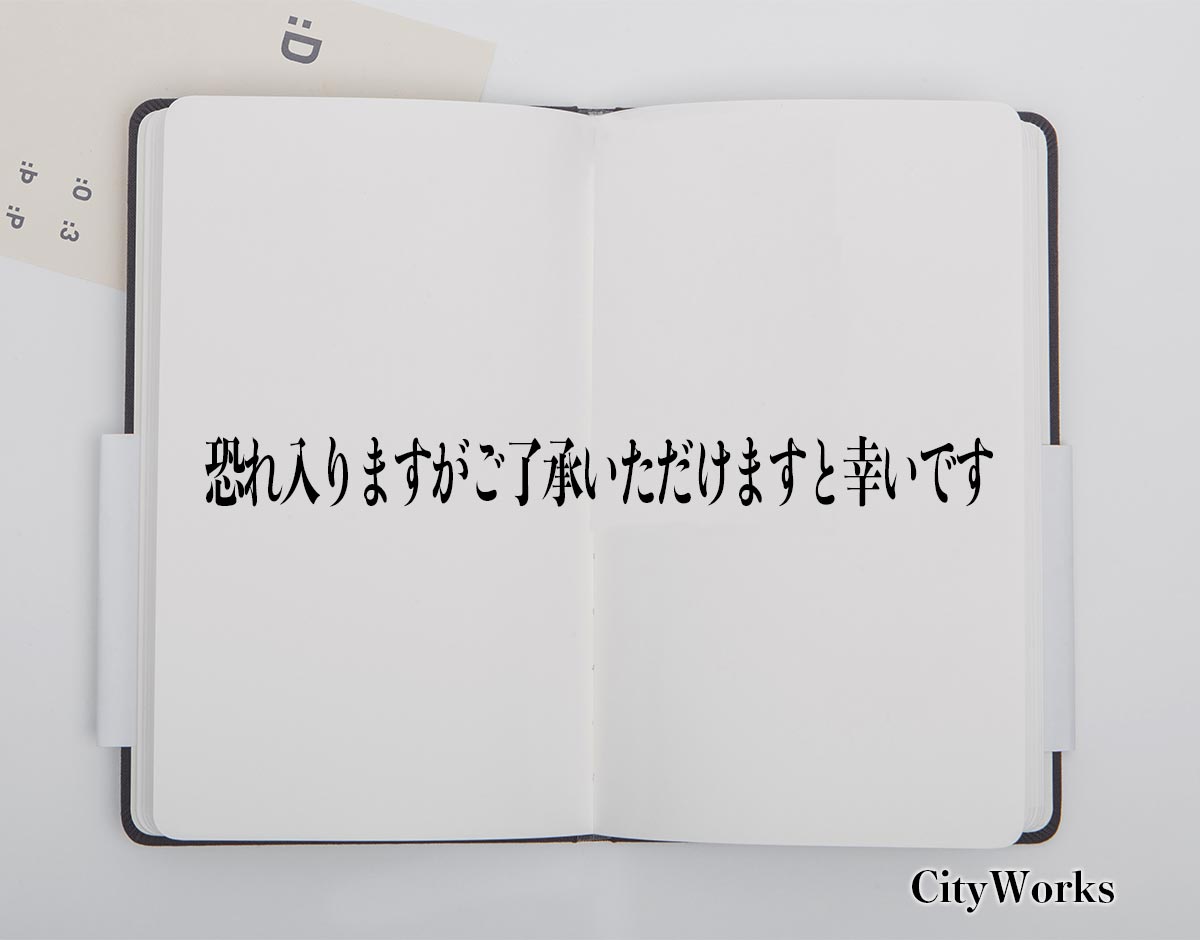 :D
:P
:O
:P
:3
恐れ入りますがご了承いただけますと幸いです
CityWorks